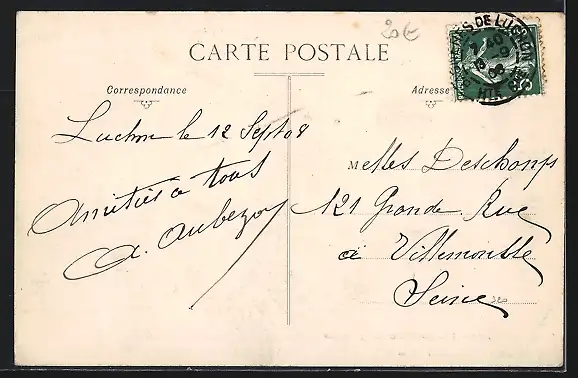 20€
CARTE POSTALE
Correspondance
Adresse
Luchon le 12 Sept 08
Amitiés à tous
A. Aubezoy
Melles Deschamps
121 Grande Rue
à Villemomble
Seine
S DE LUCHON
12
08